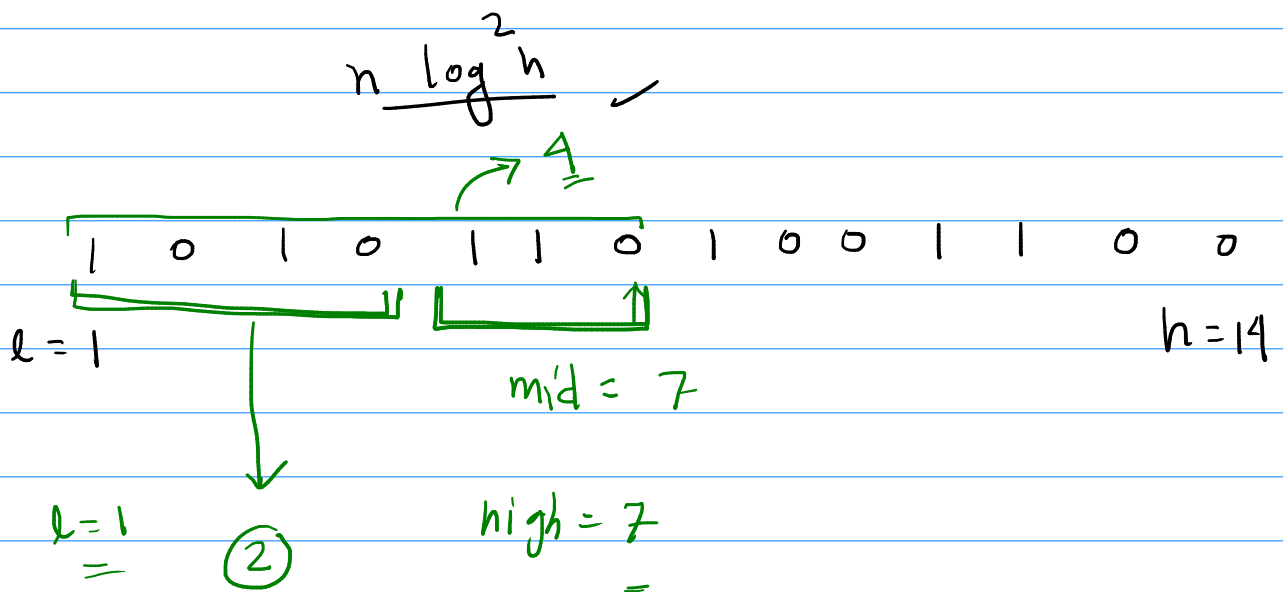 n log² n
4
1 0 1 0 1 1 0 1 0 0 1 1 0 0
l = 1
h = 14
mid = 7
l = 1
high = 7
2